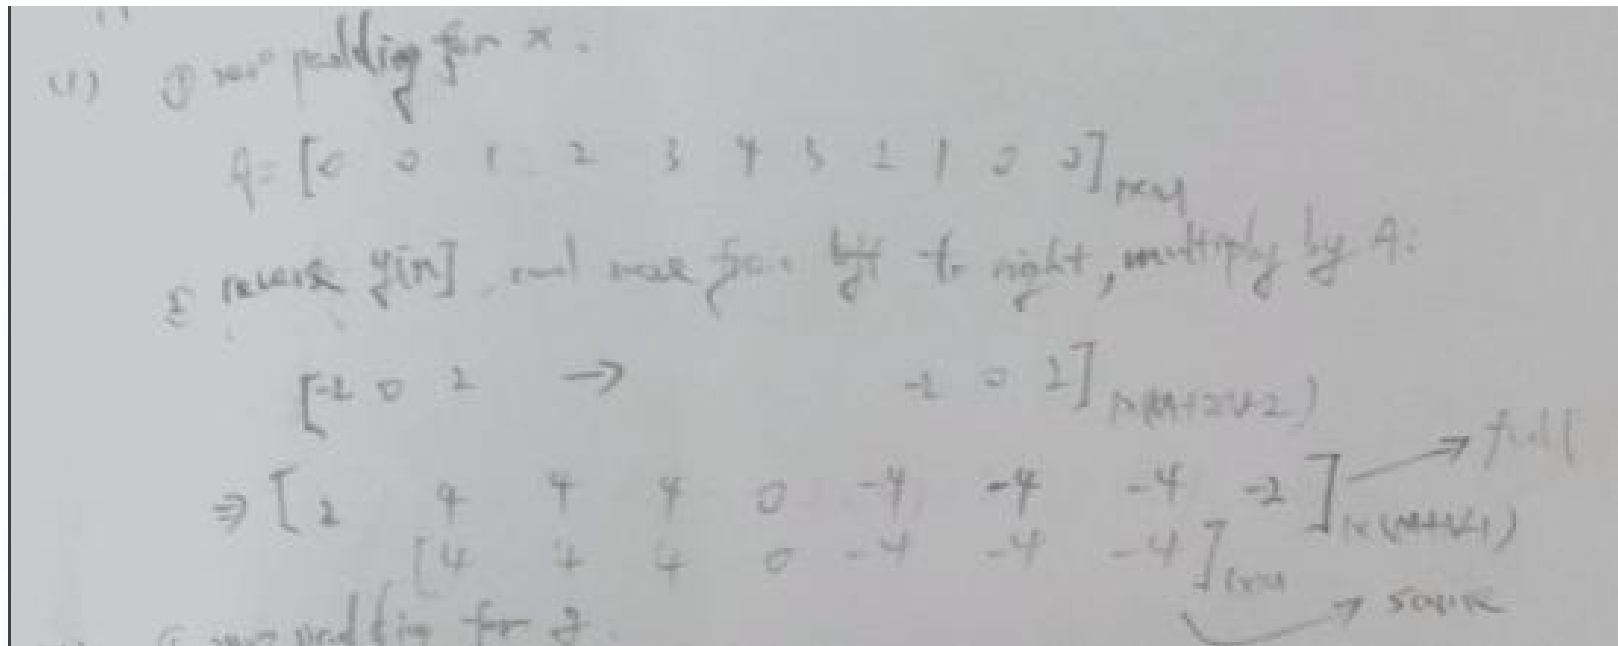 (1) ① zero padding for x.
A = [0 0 1 2 3 4 3 2 1 0 0] 1×M
② reverse y[n], and move from left to right, multiply by A:
[-2 0 2 → -2 0 2] 1×(M+2N-2)
⇒ [2 4 4 4 0 -4 -4 -4 -2] 1×(M+N-1) → full
[4 4 4 0 -4 -4 -4] 1×M → same
① zero padding for